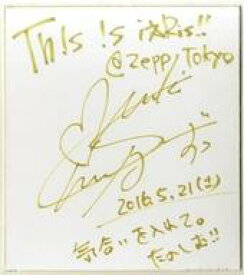 Th!s !s i☆Ris!!
@Zepp Tokyo
2016.5.21(土)
気合いを入れて。
たのしむ!!